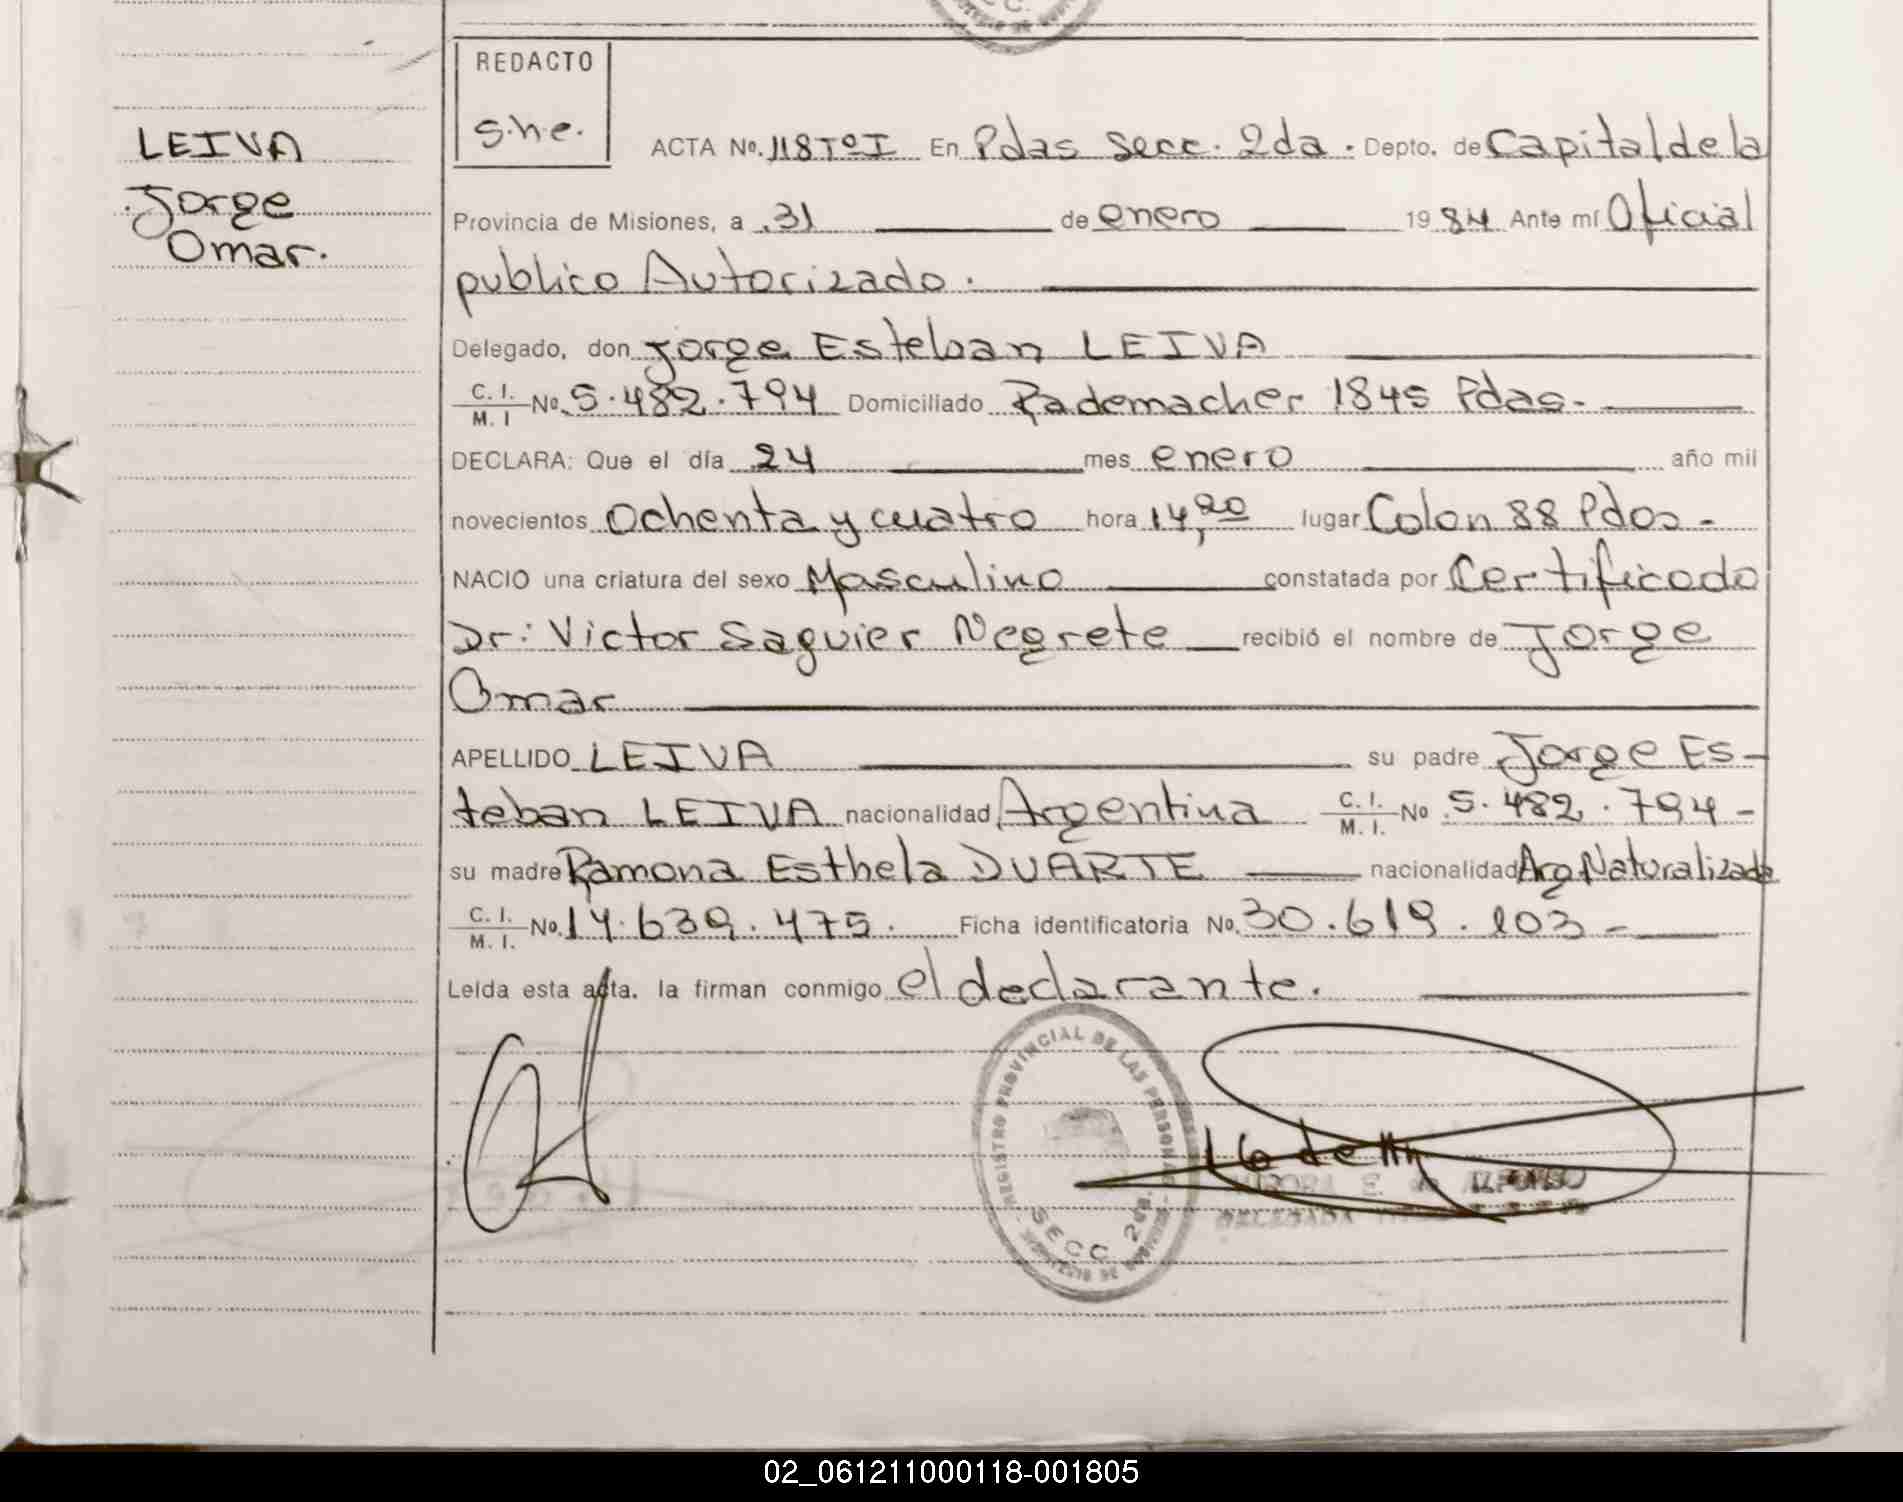 REDACTO
s.h.e.
LEIVA
Jorge
Omar.
ACTA No. 118 TºI En Pdas Secc. 2da. Depto. de Capital de la
Provincia de Misiones, a 31 de enero 1984 Ante mí Oficial
publico Autorizado.
Delegado, don Jorge Esteban LEIVA
C. I. / M. I No. 5.482.794 Domiciliado Rademacher 1845 Pdas-
DECLARA: Que el día 24 mes enero año mil
novecientos Ochenta y cuatro hora 14,20 lugar Colon 88 Pdas-
NACIO una criatura del sexo Masculino constatada por Certificado
Dr: Victor Saguier Negrete recibió el nombre de Jorge
Omar
APELLIDO LEIVA su padre Jorge Es-
teban LEIVA nacionalidad Argentina C. I. / M. I. No 5.482.794-
su madre Ramona Esthela DUARTE nacionalidad Arg Naturalizada
C. I. / M. I. No. 14.639.475. Ficha identificatoria No. 30.619.103-
Leída esta acta. la firman conmigo el declarante.
REGISTRO PROVINCIAL DE LAS PERSONAS
SECC. 2da.
DELEGADA
02_061211000118-001805